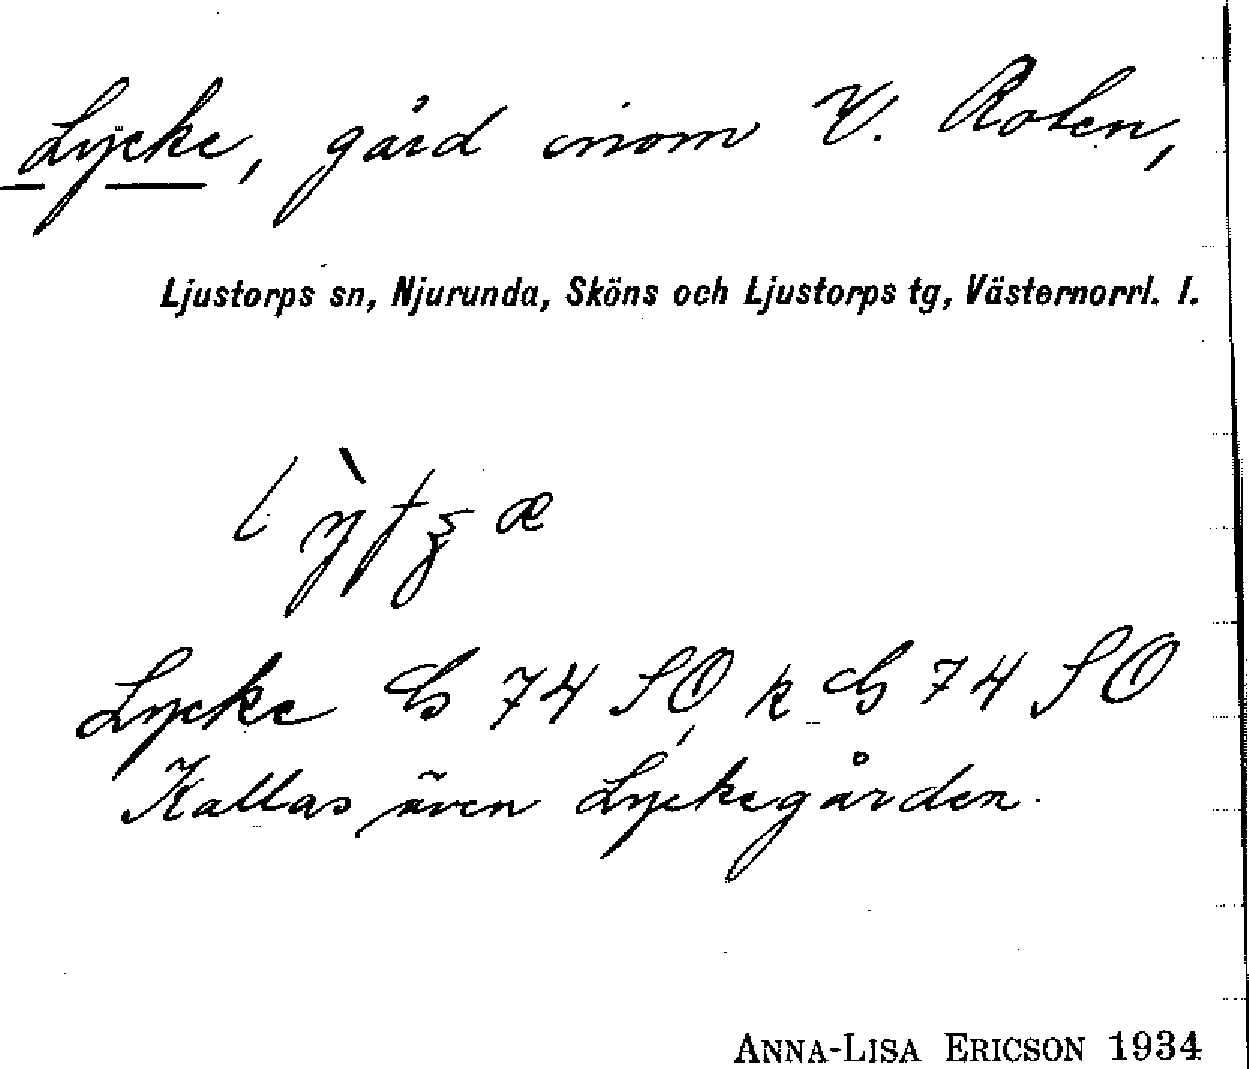 Lycke, gård inom V. Roten,
Ljustorps sn, Njurunda, Sköns och Ljustorps tg, Västernorrl. l.
Lycke 74 SO, k 74 SO
Kallas även Lyckegården.
ANNA-LISA ERICSON 1934